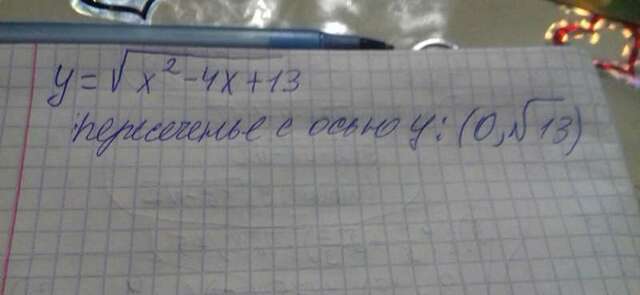 y=√x²-4x+13
пересеченье с осью y: (0,√13)